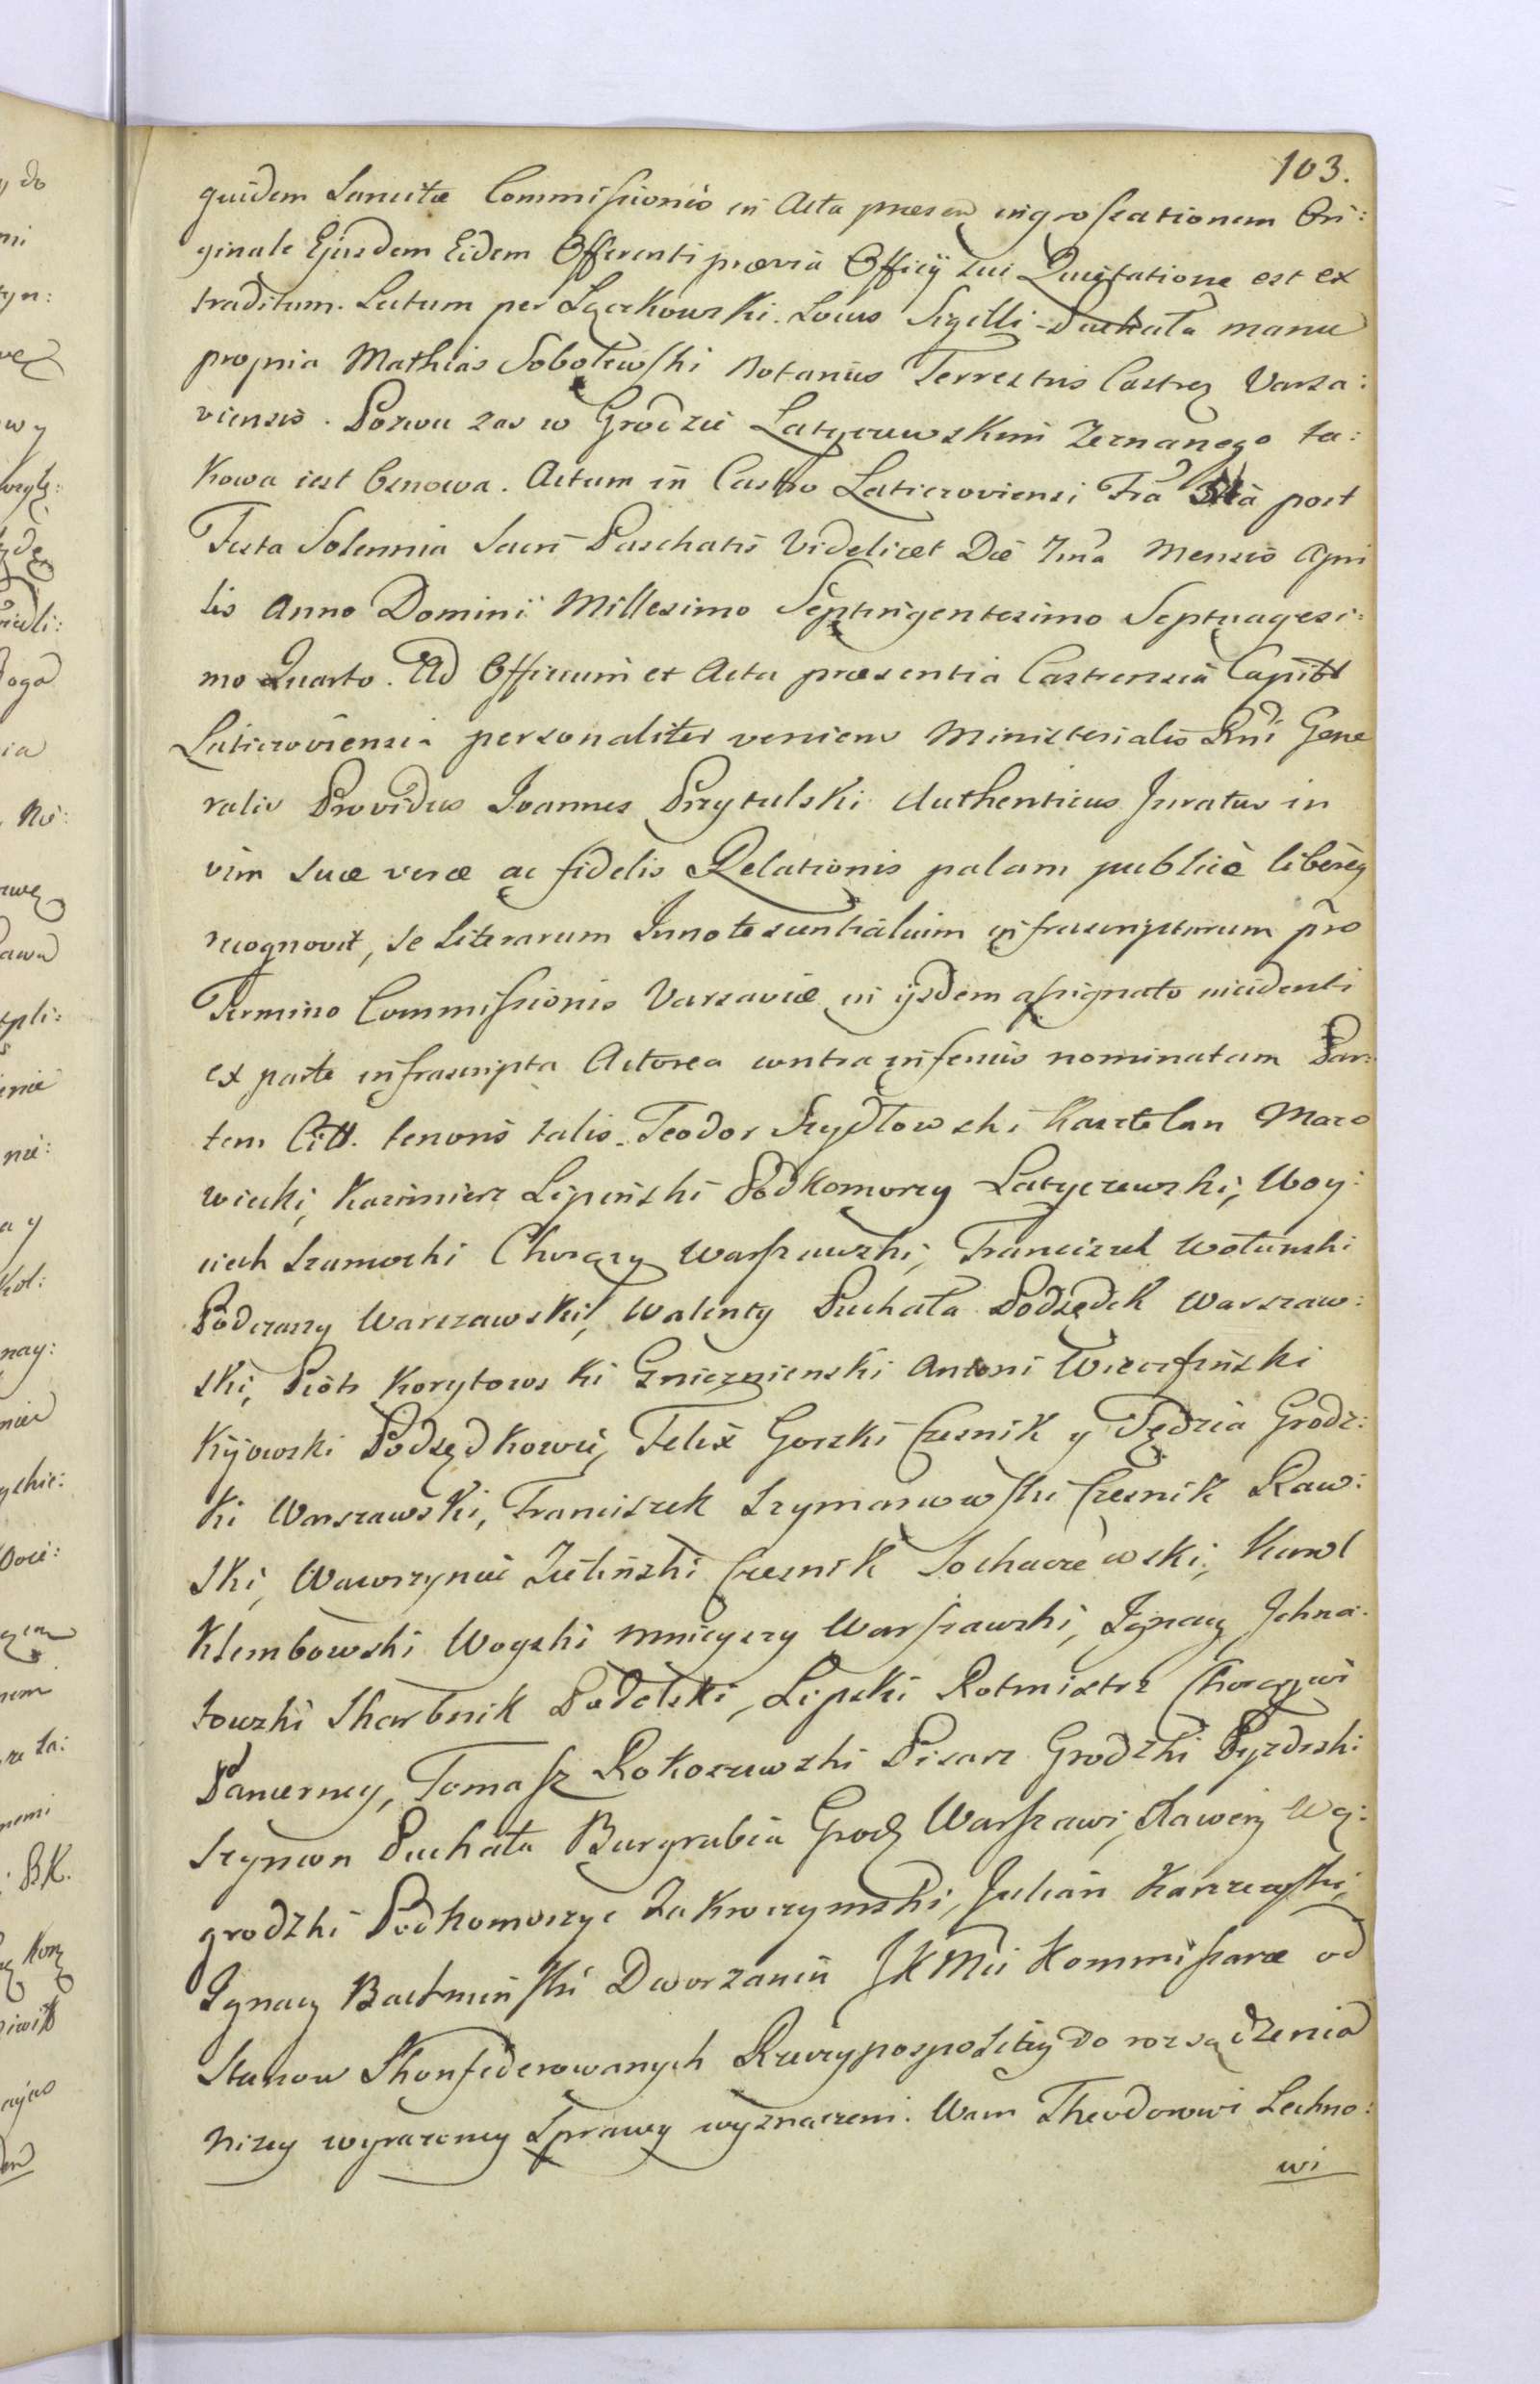 103.
quidem Sancitæ Commissionis in Acta præsen ingrossationem Ori:
ginale Ejusdem Eidem Offerenti prævia Officÿ sui Quitatione est ex
traditum. Lectum per Łączkowski. Locus Sigilli Puchała manu
propria Mathias Sobolewski Notarius Terrestris Castreq Varsa:
viensis. Pozwu zas w Grodzie Latyczewskim Zeznanego ta:
Kowa iest Osnowa. Actum in Castro Laticzoviensi Fria post
Festa Solennia Sacri Paschatis Videlicet Die 7ma Mensis Apri
lis Anno Domini Millesimo Septingentesimo Septuagesi:
mo Quarto. Ad Officium et Acta præsentia Castrensia Capitt
Laticzoviensia personaliter veniens Ministerialis Rni Gene
ralis Providus Joannes Przytulski Authenticus Juratus in
vim suæ veræ ac fidelis Relationis palam publicè liberèq
recognovit, se Literarum Innotescentialium infrascriptarum pro
Termino Commissionis Varsaviæ in ÿsdem assignato incidenti
ex parte infrascripta Actorea contra inferius nominatam Par:
tem Citt. tenoris talis. Teodor Szydłowski Kasztelan Mazo
wiecki, Kazimierz Lipiński Podkomorzy Latyczewski, Woy:
ciech Szamocki Chorąży Warszawski, Franciszek Wołunski
Podczaszy Warszawski, Walenty Puchała Podsędek Warszaw:
ski, Piotr Korytowski Gnieznienski Antoni
Kijowski Podsędkowie, Felix Gorski Czesnik y Sędzia Grodz:
ki Warszawski, Franciszek Szymanowski Czesnik Raw:
ski, Wawrzyniec Zieliński Czesnik Sochaczewski, Karol
Klembowski Woyski mnieyszy Warszawski, Ignacy Jchna:
towski Skarbnik Podolski, Lipski Rotmistrz Chorągwi
Pancerney, Tomasz Rokoszewski Pisarz Grodzki Pyzdrski
Szymon Puchała Burgrabia Grodz Warszawi, Xawery Wy:
grodzki Podkomorzyc Zakroczymski, Julian Karczewski,
Ignacy Bachmiński Dworzanin JKMci Kommissarze od
Stanow Skonfederowanych Rzeczypospolitey do rozsądzenia
nizey wyrazoney Sprawy wyznaczeni. Wam Theodorowi Lechno:
wi